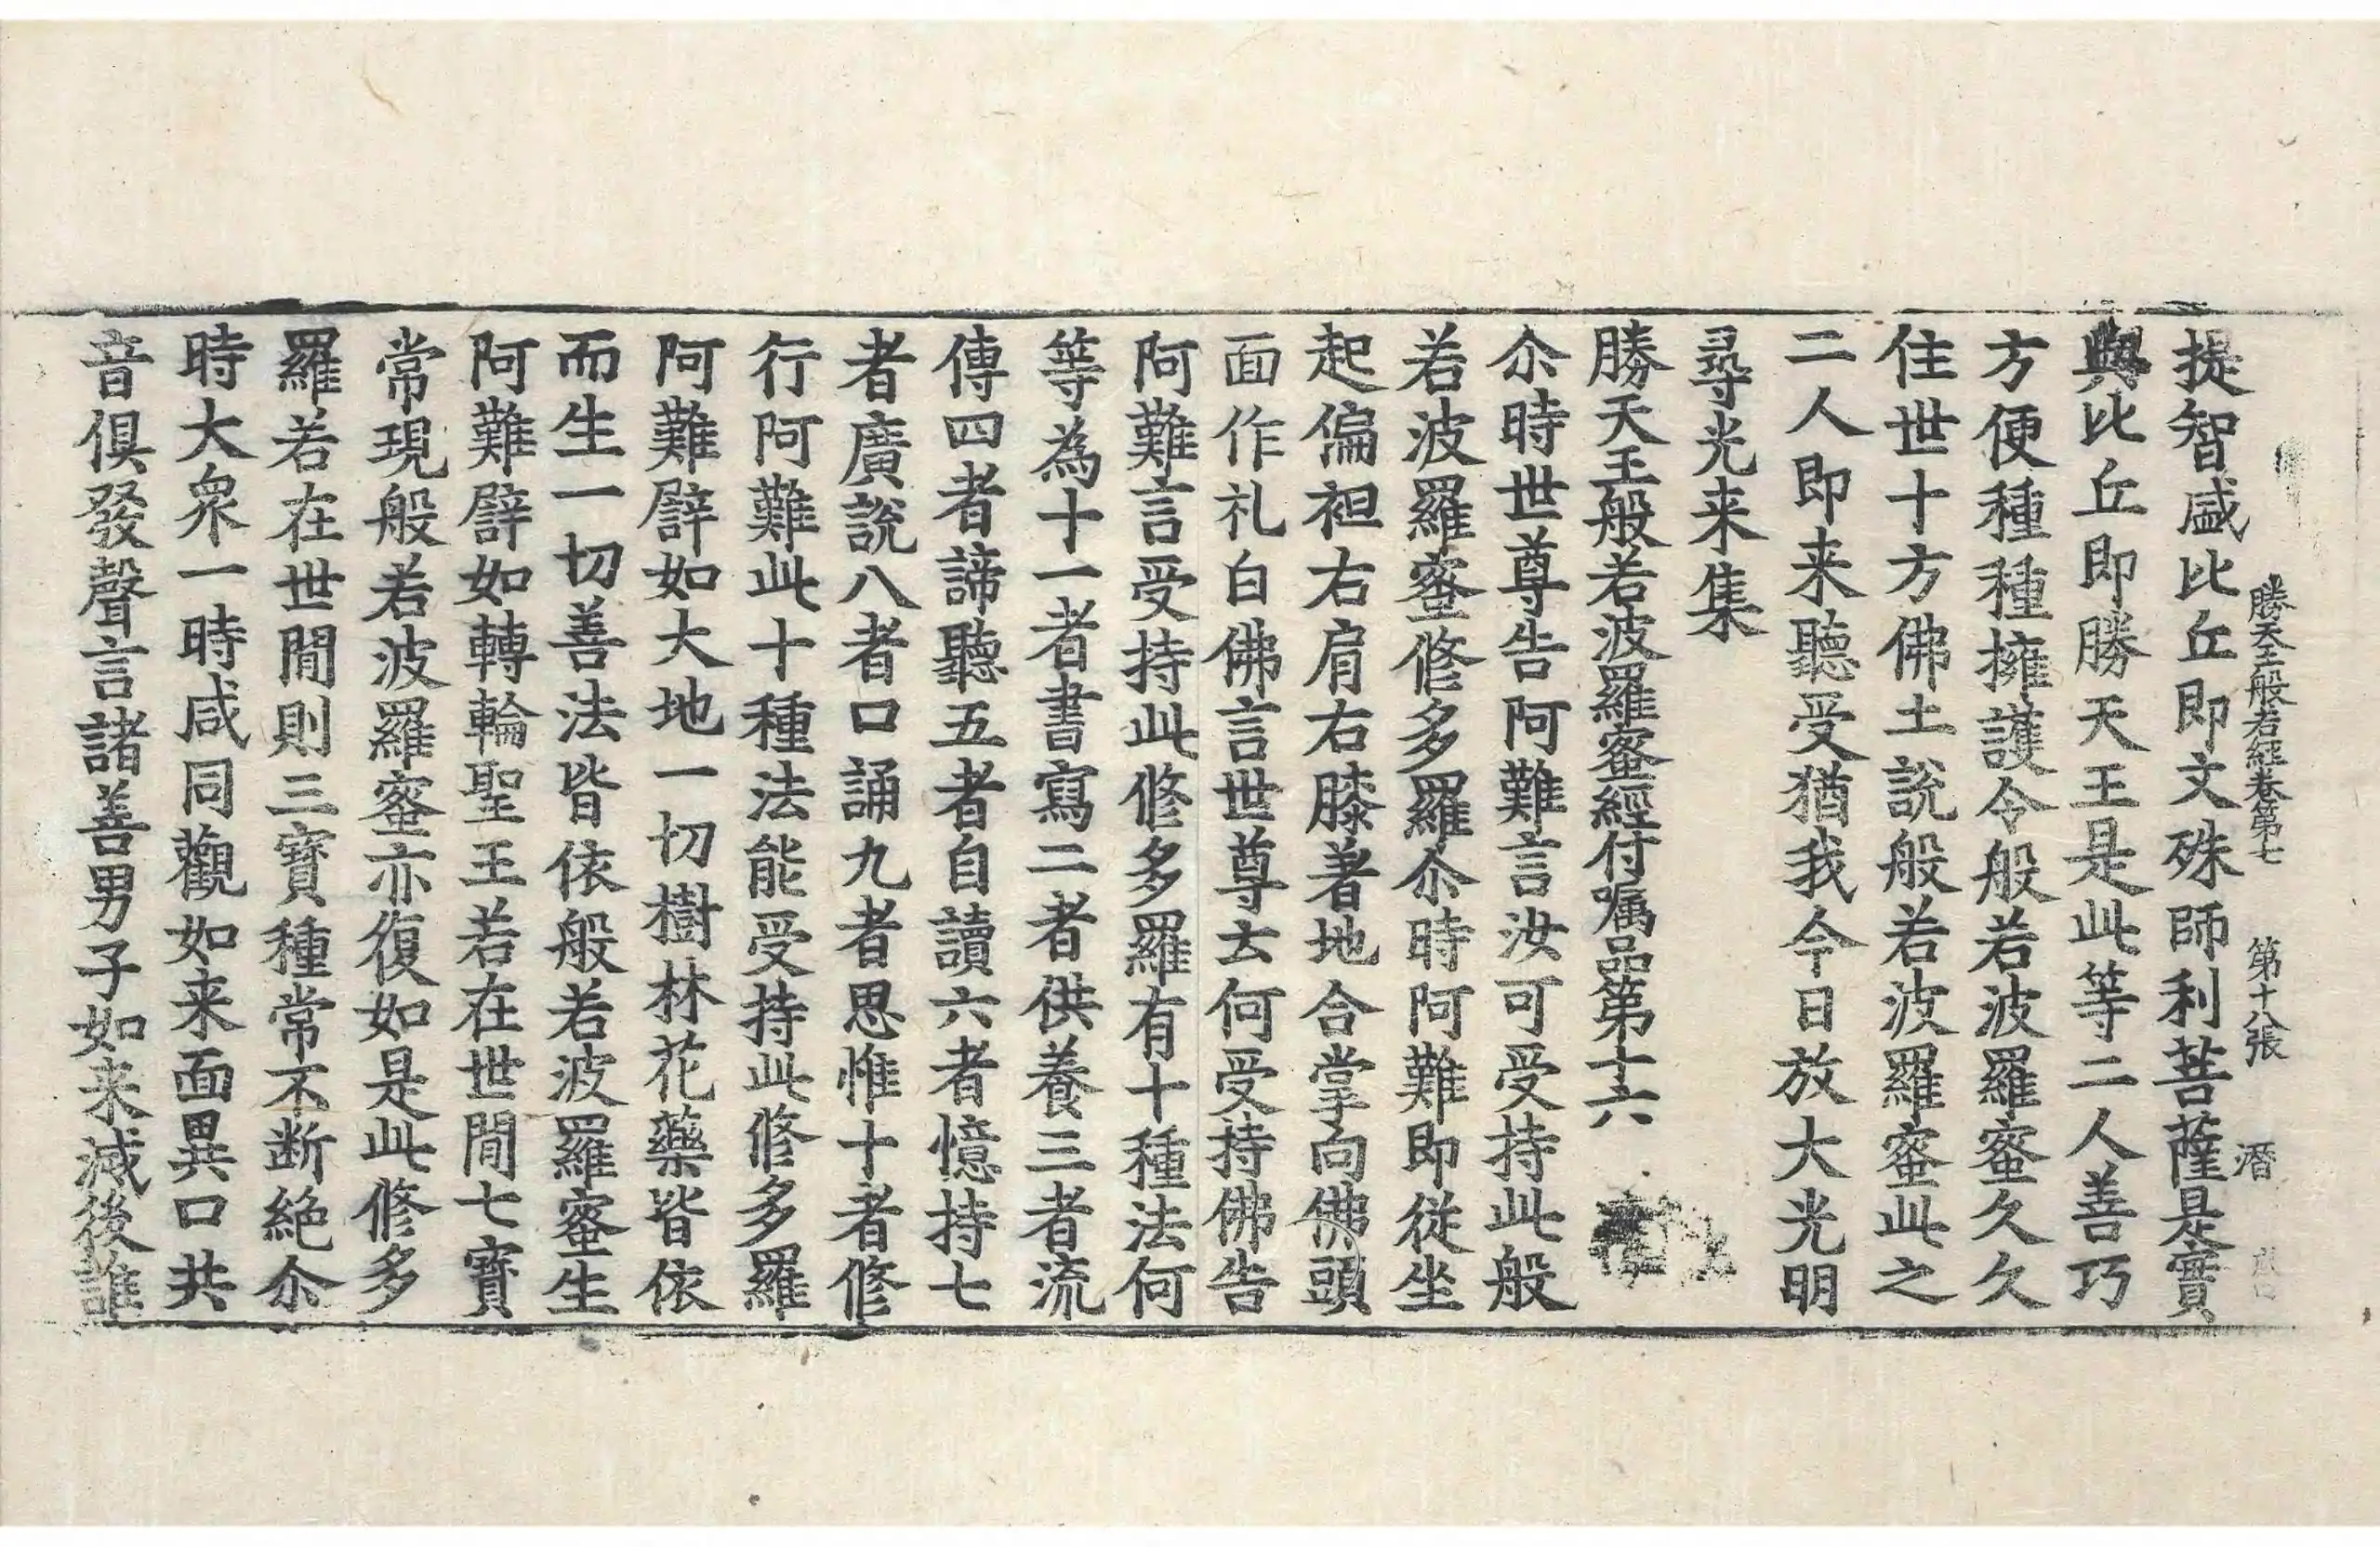 勝天王般若經卷第七　第十八張　潛
提智盛比丘即文殊師利菩薩是實
與比丘即勝天王是此等二人善巧
方便種種擁護令般若波羅蜜久久
住世十方佛土說般若波羅蜜此之
二人即来聽受猶我今日放大光明
尋光来集
勝天王般若波羅蜜經付嘱品第十六
尒時世尊告阿難言汝可受持此般
若波羅蜜修多羅尒時阿難即從坐
起偏袒右肩右膝著地合掌向佛頭
面作礼白佛言世尊云何受持佛告
阿難言受持此修多羅有十種法何
等為十一者書寫二者供養三者流
傳四者諦聽五者自讀六者憶持七
者廣說八者口誦九者思惟十者修
行阿難此十種法能受持此修多羅
阿難譬如大地一切樹林花藥皆依
而生一切善法皆依般若波羅蜜生
阿難譬如轉輪聖王若在世間七寶
常現般若波羅蜜亦復如是此修多
羅若在世間則三寶種常不断絶尒
時大眾一時咸同觀如来面異口共
音俱發聲言諸善男子如来滅後誰